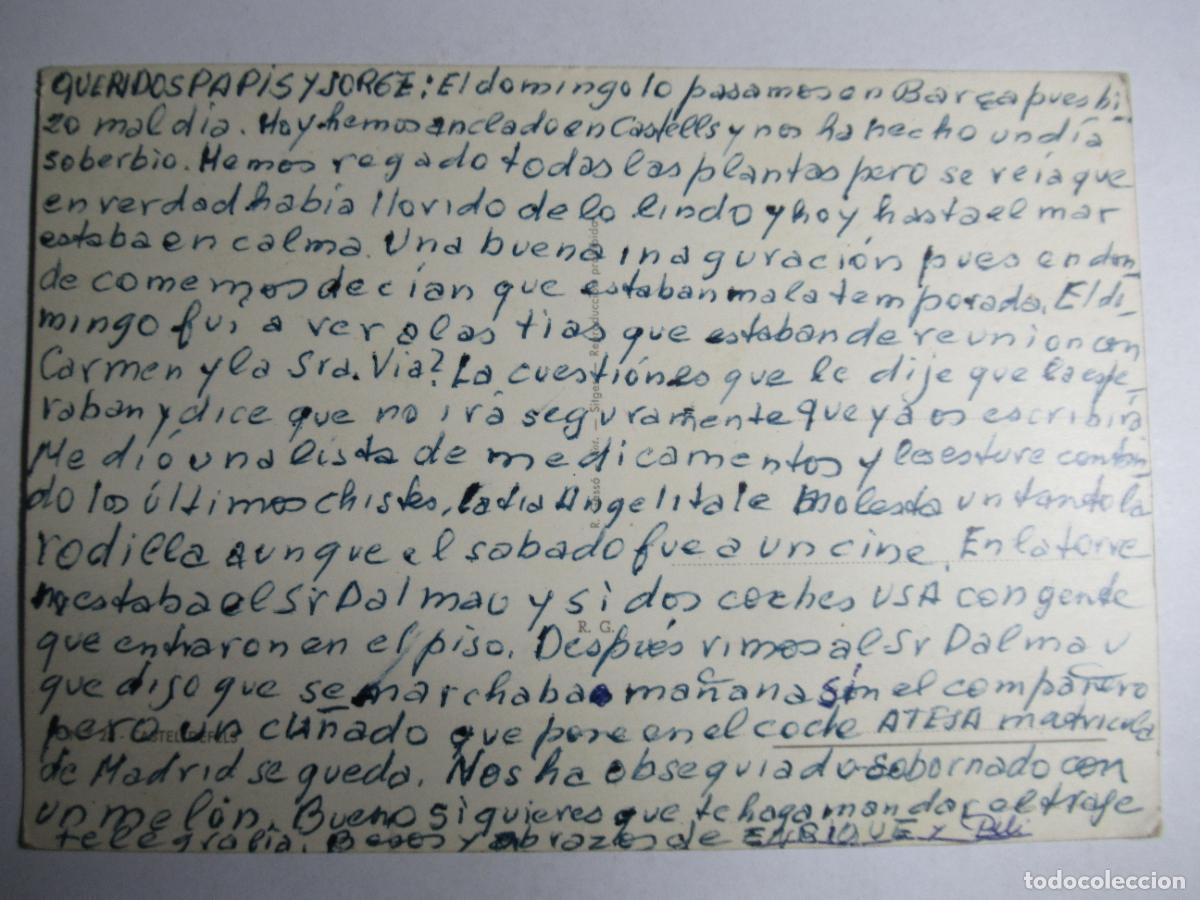 QUERIDOS PAPIS Y JORGE: El domingo lo pasamos en Barça pues hi-
zo mal dia. Hoy hemos anclado en Castells y nos ha hecho un día
soberbio. Hemos regado todas las plantas pero se veía que
en verdad había llovido de lo lindo y hoy hasta el mar
estaba en calma. Una buena inaguración pues en don-
de comemos decían que estaban mala temporada. El do-
mingo fui a ver a las tias que estaban de reunion con
Carmen y la Sra. Via? La cuestión es que le dije que la espe-
raban y dice que no irá seguramente que ya os escribirá
Me dió una lista de medicamentos y les estuve contan-
do los últimos chistes, la tia Angelita le molesta un tanto la
rodilla aunque el sabado fue a un cine. En la torre
no estaba el Sr Dalmau y si dos coches USA con gente
que entraron en el piso. Después vimos al Sr Dalmau
que dijo que se marchaba mañana sin el compañero
pero un cuñado que pone en el coche ATESA matricula
de Madrid se queda. Nos ha obsequiado-sobornado con
un melón. Bueno si quieres que te haga mandar el traje
telegrafia. Besos y abrazos de ENRIQUE y Pili
R. Gassó - Sitges - Reproducción prohibida
R. G.
CASTELLDEFELS
todocoleccion